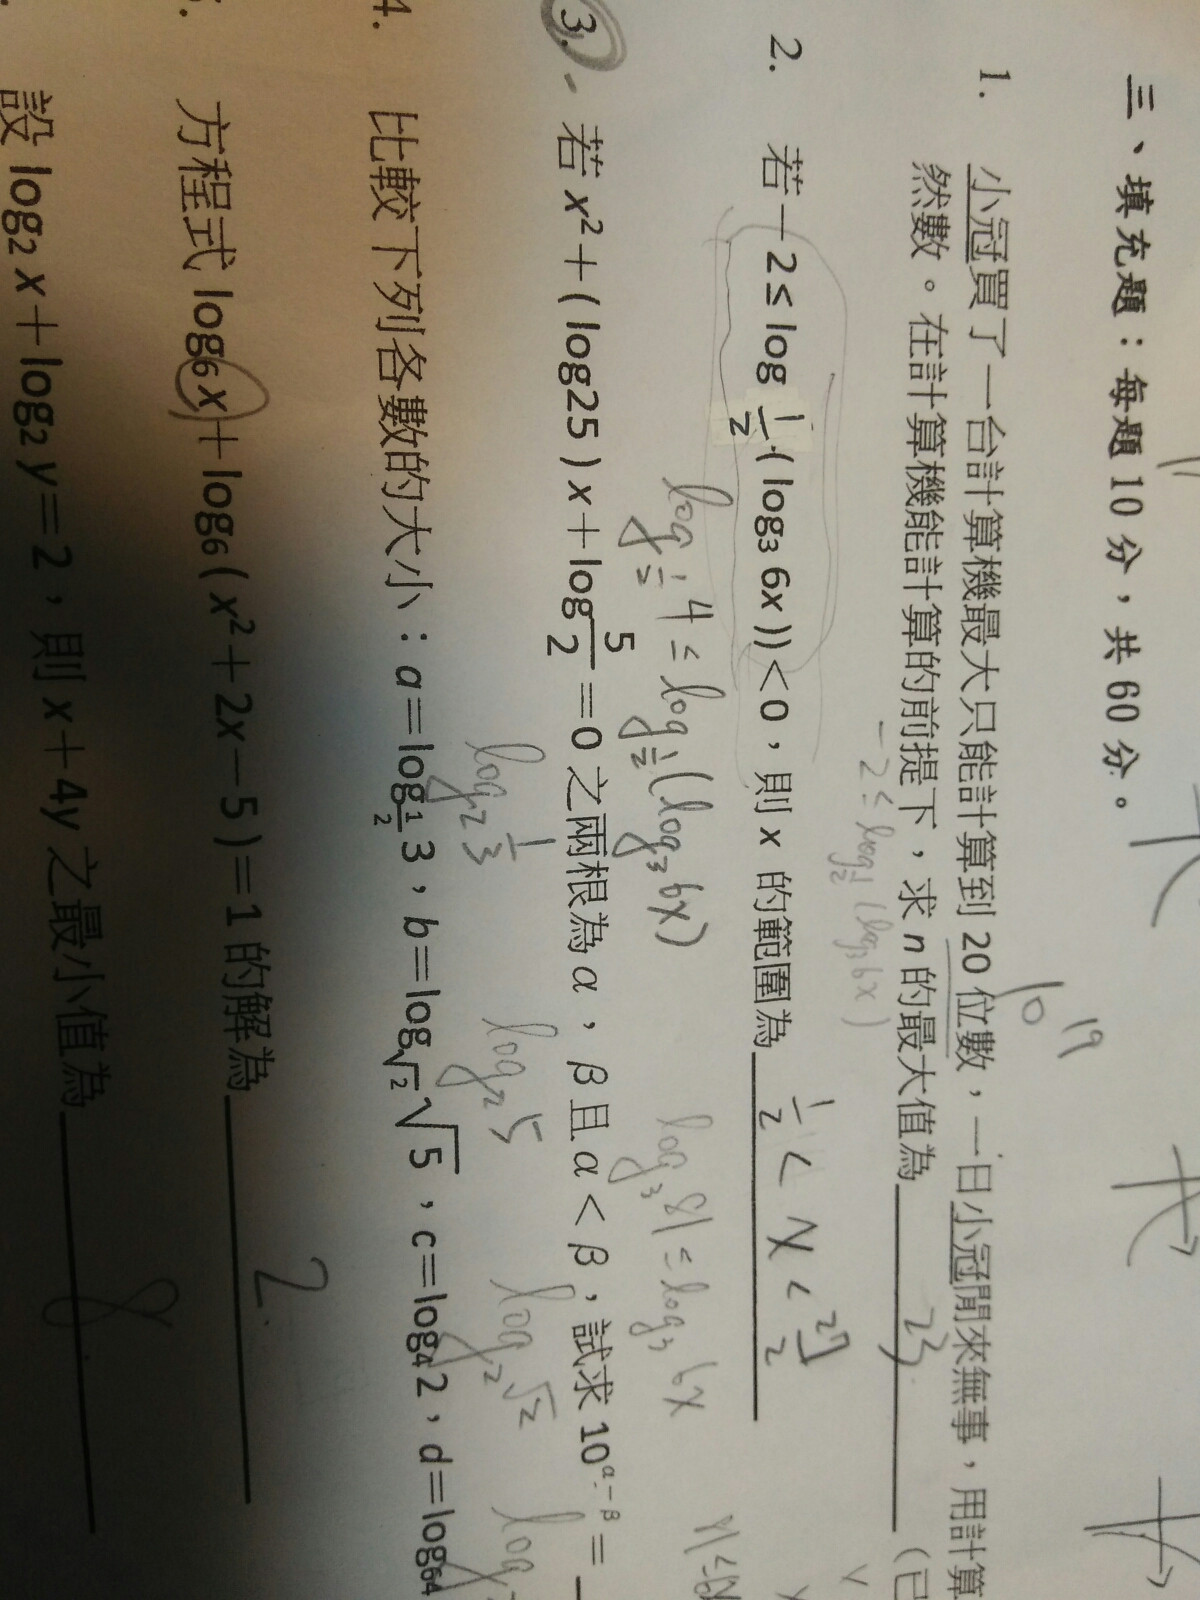 三、填充題：每題10分，共60分。
1. 小冠買了一台計算機最大只能計算到20位數，一日小冠閒來無事，用計算
10^19
然數。在計算機能計算的前提下，求n的最大值為 23 （已
-2≤log_{1/2}(log₃6x)
2. 若-2≤log_{1/2}(log₃6x))<0，則x的範圍為 1/2 < x < 27/2
log_{1/2}4≤log_{1/2}(log₃6x)
log₃81≤log₃6x
3. 若x²+(log25)x+log5/2=0之兩根為α，β且α<β，試求10^{α-β}=
4. 比較下列各數的大小：a=log_{1/2}3，b=log_{√2}√5，c=log₄2，d=log₆₄
log₂1/3
log₂5
log₂√2
log
方程式log₆x+log₆(x²+2x-5)=1的解為 2
設log₂x+log₂y=2，則x+4y之最小值為 8